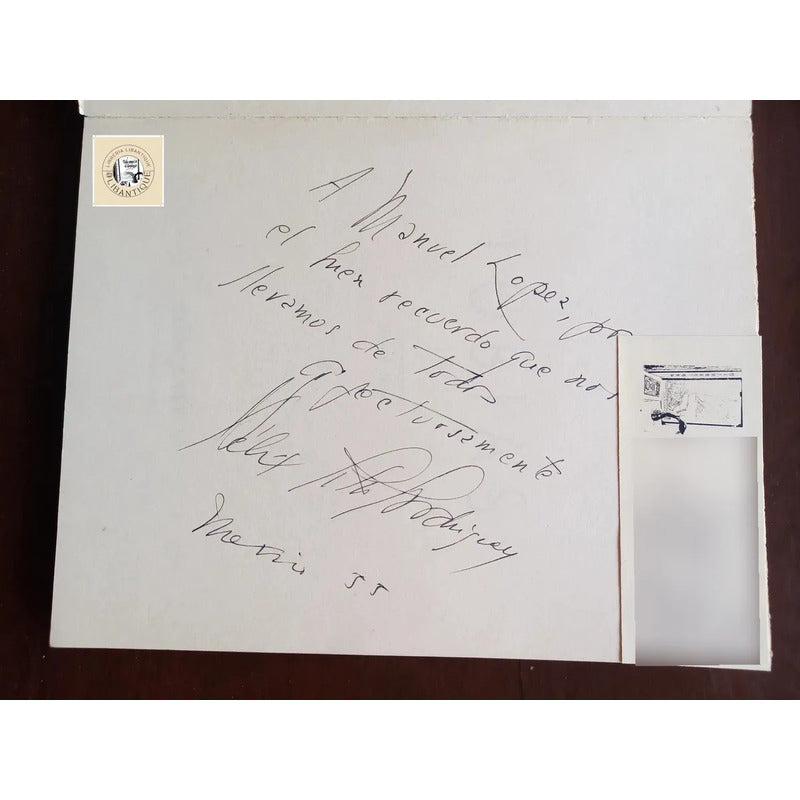 LIBRERIA LIBANTIQUE
LIBANTIQUE
A Manuel Lopez, por
el buen recuerdo que nos
llevamos de todos
afectuosamente
Félix Pita Rodriguez
Mexico 55